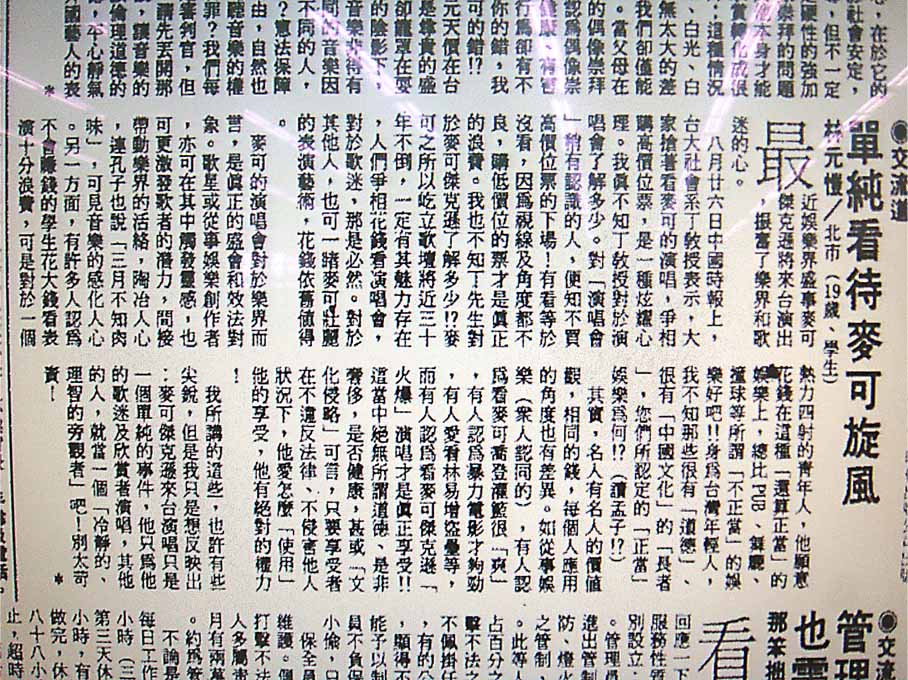 心，在於它的
社會安定，
，但不一定
性的強加
崇拜的問題
他本身才能
賞轉化成很
，這種情況
、白光、白
無太大的差
我們卻僅能
。當父母在
的偶像崇拜
認爲偶像崇
行爲卻有不
你的錯，我
可的錯!?
元天價在台
是尊貴的盛
卻籠罩在耍
的陰影下，
音樂非得有
同的音樂因
不同的人，
？憲法保障
由，自然也
聽音樂的權
罪？我們每
審判官，但
請先丟開那
，讓音樂的
倫理道德的
，平心靜氣
國藝人的表
*
●交流道
單純看待麥可旋風
林元慢／北市（19歲、學生）
最近娛樂界盛事麥可
傑克遜將來台演出
，振奮了樂界和歌
迷的心。
八月廿六日中國時報上，
台大社會系丁教授表示，大
家搶著看麥可的演唱，爭相
購高價位票，是一種炫耀心
理。我眞不知丁教授對於演
唱會了解多少。對「演唱會
」稍有認識的人，便知不買
高價位票的下場！有看等於
沒看，因爲視線及角度都不
良，購低價位的才是眞正
的浪費。我也不知丁先生對
於麥可傑克遜了解多少!?麥
可之所以屹立歌壇將近三十
年不倒，一定有其魅力存在
，人們爭相花錢看演唱會，
對於歌迷，那是必然。對於
其他人，也可一睹麥可壯麗
的表演藝術，花錢依舊値得
。
麥可的演唱會對於樂界而
言，是眞正的盛會和效法對
象。歌星或從事娛樂創作者
，亦可在其中觸發靈感，也
可更激發歌者的潛力，間接
帶動樂界的活絡，陶冶人心
，連孔子也說「三月不知肉
味」，可見音樂的感化人心
。另一方面，有許多人認爲
不會賺錢的學生花大錢看表
演十分浪費，可是對於一個
熱力四射的靑年人，他願意
花錢在這種「還算正當」的
娛樂上，總比PUB、舞廳、
撞球等所謂「不正當」的娛
樂好吧!!身爲台灣年輕人，
我不知那些很有「道德」、
很有「中國文化」的「長者
」，您們所認定的「正當」
娛樂爲何!?（讀孟子!?）
其實，名人有名人的價値
觀，相同的錢，每個人應用
的角度也有差異。如從事娛
樂（衆人認同的），有人認
爲看麥可喬登灌籃很「爽」
，有人認爲暴力電影才夠勁
，有人愛看林易增盜壘等，
而有人認爲看麥可傑克遜「
火爆」演唱才是眞正享受!!
這當中絕無所謂道德、是非
奢侈，是否健康，甚或「文
化侵略」可言，只要享受者
在不違反法律、不侵害他人
狀況下，他愛怎麼「使用」
他的享受，他有絕對的權力
！
我所講的這些，也許有些
尖銳，但是我只是想反映出
：麥可傑克遜來台演唱只是
一個單純的事件，他只爲他
的歌迷及欣賞者演唱，其他
的人，就當一個「冷靜的、
理智的旁觀者」吧！別太苛
責！
*
●交流
管理
也需
那笨拙
看
回應一下
服務性質
別設立，
。管理員
進出管制
防、燈火
之管制，
。此等人
占百分之
擊不法之
不佩掛任
，有的公
，顯得不
能予以制
員不負保
小偷，只
保全員
維護。個
打擊不法
人多屬靑
月有兩萬
。約爲管
不論是
每日工作
小時（三
第三天休
小時，有
做完，休
八十八小
止，超時